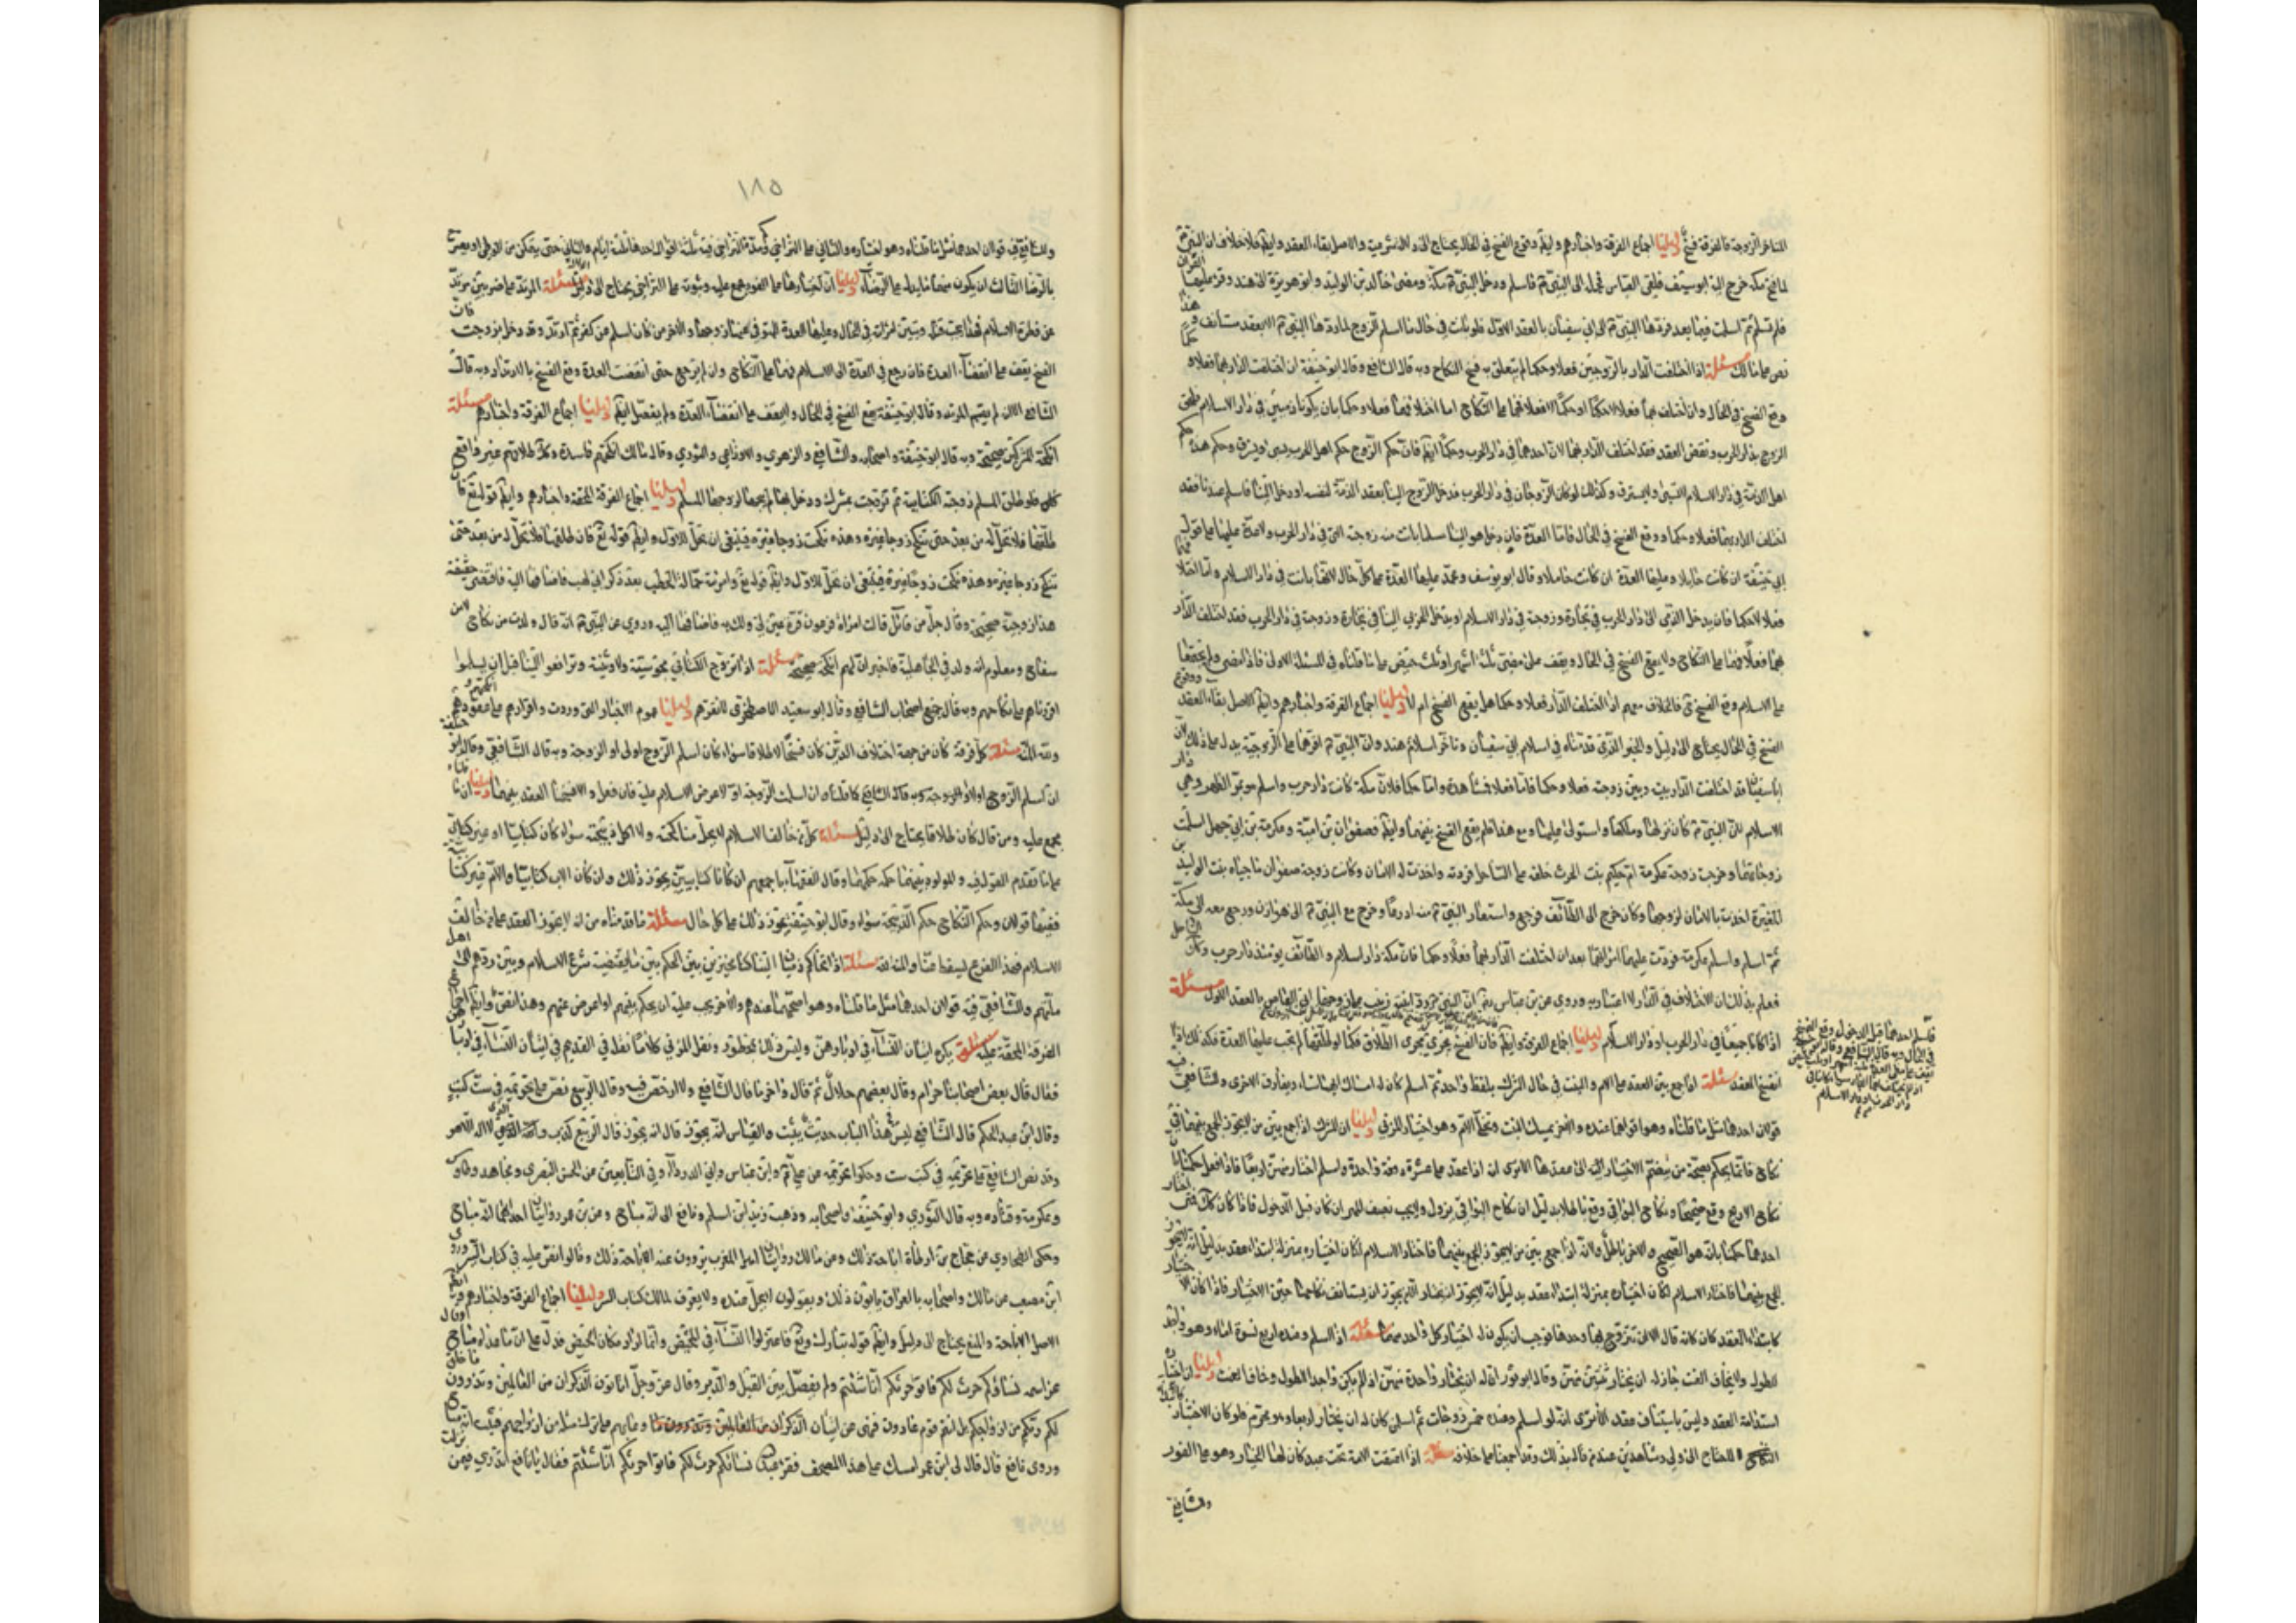 المتاخر الزوجة فالفرقة فسخ دليلنا اجماع الفرقة واخبارهم وايضا وقوع الفسخ في الحال يحتاج الى دلالة شرعية والاصل بقاء العقد وايضا فلا خلاف ان النبي
لما فتح مكة خرج اليه ابو سفيان فلقى العباس فحمله الى النبي فاسلم ودخل النبي مكة ومضى خالد بن الوليد وابو هريرة الى هند وقرءا عليها القران
فلم تسلم ثم اسلمت فيما بعد فردها النبي الى ابي سفيان بالعقد الاول فلو بانت في حال ما اسلم الزوج لما ردها النبي الا بعقد مستانف وهذا
نص على مالك مسئلة اذا اختلفت الدار بالزوجين فعلا وحكما لم يتعلق به فسخ النكاح وبه قال الشافعي وقال ابو حنيفة ان اختلفت الدار بهما فعلا وحكما
وقع الفسخ في الحال وان اختلف بهما فعلا لا حكما او حكما لا فعلا فهما على النكاح اما اختلافهما فعلا وحكما بان يكونا ذميين في دار الاسلام فلحق
الزوج بدار الحرب ونقض العقد فقد اختلف الدار بهما لان احدهما في دار الحرب وحكما ايضا فان حكم الزوج حكم اهل الحرب يسبى ويسترق وحكمها حكم
اهل الذمة في دار الاسلام لا تسبى ولا تسترق وكذلك لو كان الزوجان في دار الحرب فدخل الزوج الينا بعقد الذمة لنفسه او دخل الينا فاسلم عندنا فقد
اختلف الدار بهما فعلا وحكما ووقع الفسخ في الحال فاما العدة فان دخل هو الينا مسلما بانت منه زوجته التي في دار الحرب ولا عدة عليها على قول
ابي حنيفة ان كانت حايلا وعليها العدة ان كانت حاملا وقال ابو يوسف ومحمد عليها العدة على كل حال لانها بانت في دار الاسلام واما اختلافهما
فعلا لا حكما فان يدخل الذمي الى دار الحرب في تجارة وزوجته في دار الاسلام او يدخل الحربي الينا في تجارة وزوجته في دار الحرب فقد اختلف الدار
بهما فعلا فهما على النكاح ولا يقع الفسخ في الحال ويقف على مضي ثلثة اشهر او ثلث حيض على ما قلناه في المسئلة الاولى فاذا مضى ولم يجتمعا
على الاسلام وقع الفسخ فالخلاف معهم اذا اختلف الدار فعلا وحكما هل يقع الفسخ ام لا دليلنا اجماع الفرقة واخبارهم وايضا الاصل بقاء العقد ووقوع
الفسخ في الحال يحتاج الى دليل والخبر الذي قدمناه في اسلام ابي سفيان وتاخر اسلام هند وان النبي اقرهما على الزوجية يدل على ذلك لان
ابا سفيان قد اختلفت الدار بينه وبين زوجته فعلا وحكما فاما فعلا فمشاهدة واما حكما فلان مكة كانت دار حرب واسلم هو بمر الظهران وهي دار
الاسلام لان النبي كان نزلها وملكها واستولى عليها ومع هذا فلم يقع الفسخ بينهما وايضا فصفوان بن امية وعكرمة بن ابي جهل اسلمت
زوجاتهما وخرجت زوجة عكرمة ام حكيم بنت الحرث خلفه على الساحل فردته واخذت له الامان وكانت زوجة صفوان فاجياه بنت الوليد بن
المغيرة اخذت بالامان لزوجها وكان خرج الى الطائف فرجع واستعار النبي منه ادرعا وخرج مع النبي الى هوازن ورجع معه الى مكة
ثم اسلم واسلم عكرمة فردت عليهما امراتاهما بعد ان اختلفت الدار بهما فعلا وحكما فان مكة دار اسلام والطائف يومئذ دار حرب وكان الساحل
فعلم بذلك ان الاختلاف في الدار لا اعتبار به وروي عن ابن عباس ان النبي رد ابنته زينب على زوجها ابي العاص بالعقد الاول مسئلة
اذا كانا جميعا في دار الحرب او دار الاسلام دليلنا اجماع الفرقة وايضا فان الفسخ يجري مجرى الطلاق فكما لو طلقها لم يجب عليها العدة فكذلك اذا
انفسخ العقد مسئلة اذا جمع بين العقد على الام والبنت في حال الشرك بلفظ واحد ثم اسلم كان له امساك ايهما شاء ويفارق الاخرى وللشافعي فيه
قولان احدهما مثل ما قلناه وهو اقواهما عنده والاخر يمسك البنت ويخلي الام وهو اختيار المزني دليلنا ان المشرك اذا جمع بين من لا يجوز الجمع بينهما في
نكاح فانما يحكم بصحته من ينضم الاختيار اليه الى عقدها الا ترى انه اذا عقد على عشرة دفعة واحدة واسلم اختار منهن اربعا فاذا فعل حكمنا بان
نكاح الاربع وقع صحيحا ونكاح البواقي وقع باطلا بدليل ان نكاح البواقي يزول ولا يجب نصف المهر ان كان قبل الدخول فاذا كان كذلك فمتى اختار
احدهما حكمنا بانه هو الصحيح والاخر باطل ولانه اذا جمع بين من لا يجوز الجمع بينهما فاختار الاسلام لكان اختياره بمنزلة ابتداء عقد بدليل انه لا يجوز
الجمع بينهما فاختار الاسلام لكان اختياره بمنزلة ابتداء عقد بدليل انه لا يجوز ان يختار الا من يجوز ان يستانف نكاحها حين الاختيار فاذا كان الاختيار
كابتداء العقد كان كانه قال الان تزوج بها وحدها فوجب ان يكون له اختيار كل واحد منهما مسئلة اذا اسلم وعنده اربع نسوة اماء وهو واجد
للطول ولا يخاف العنت جاز له ان يختار ثنتين منهن وقال ابو ثور له ان يختار واحدة منهن اذا لم يكن واجدا للطول وخاف العنت دليلنا ان اختياره
استدامة العقد وليس باستيناف عقد الا ترى انه لو اسلم وعنده خمس زوجات ثم اسلمن كان له ان يختار اربعا وهو محرم فلو كان الاختيار كابتداء
النكاح لاحتاج الى ولي وشاهدين عند من قال بذلك وقد اجمعنا على خلافه مسئلة اذا اعتقت الامة تحت عبد كان لها الخيار وهو على الفور
وللشافعي
فاسلم احدهما قبل الدخول وقع الفسخ
في الحال وبه قال الشافعي
دار الحرب او دار الاسلام
١٨٥
وللشافعي فيه قولان احدهما مثل ما قلناه وهو اختياره والثاني على التراخي
بالرضا الثالث ان يكون دليلنا ان اختيارها على الفور مجمع عليه وثبوته على التراخي يحتاج الى دليل مسئلة المرتد على ضربين مرتد
عن فطرة الاسلام فهذا يجب قتله وتبين امراته في الحال وعليها العدة عدة المتوفى عنها زوجها والاخر من كان اسلم عن كفر ثم ارتد وقد دخل بزوجته فان
الفسخ يقف على انقضاء العدة فان رجع في العدة الى الاسلام فهما على النكاح وان لم يرجع حتى انقضت العدة وقع الفسخ بالارتداد وبه قال
الشافعي الا انه لم يقسم المرتد وقال ابو حنيفة يقع الفسخ في الحال ولا يقف على انقضاء العدة ولم يفصل ايضا دليلنا اجماع الفرقة واخبارهم مسئلة
انكحة المشركين صحيحة وبه قال ابو حنيفة واصحابه والشافعي والزهري والاوزاعي والثوري وقال مالك انكحتهم فاسدة وكذا طلاقهم غير واقع
فلو طلق المسلم زوجته الكتابية ثم تزوجت بمشرك ودخل بها لم يبحها لزوجها المسلم دليلنا اجماع الفرقة المحقة واخبارهم وايضا قوله تع فان
طلقها فلا تحل له من بعد حتى تنكح زوجا غيره وهذه نكحت زوجا غيره فينبغي ان تحل للاول وايضا قوله تع فان طلقها فلا تحل له من بعد حتى
تنكح زوجا غيره وهذه نكحت زوجا غيره فينبغي ان تحل للاول وايضا قوله تع وامراته حمالة الحطب بعد ذكر ابي لهب فاضافها اليه فاقتضى حقيقة
هذا زوجية صحيحة وقال جل من قائل قالت امراة فرعون قرة عين لي ولك فاضافها اليه وروي عن النبي انه قال ولدت من نكاح لا من
سفاح ومعلوم انه ولد في الجاهلية فاخبر ان لهم انكحة صحيحة مسئلة اذا تزوج الكتابي بمجوسية ولا وثنية وترافعوا الينا قبل ان يسلموا
اقررناهم على نكاحهم وبه قال جميع اصحاب الشافعي وقال ابو سعيد الاصطخري لا نقرهم دليلنا عموم الاخبار التي وردت واقرارهم على عقودهم
مسئلة كل فرقة كان من جهة اختلاف الدين كان فسخا لا طلاقا سواء كان اسلم الزوج اولا او الزوجة وبه قال الشافعي وقال ابو حنيفة
ان اسلم الزوج اولا وبه قال الشافعي كما قلناه وان اسلمت الزوجة اولا عرض الاسلام عليه فان فعل والا فسخنا العقد بينهما دليلنا ان ما قلناه
مجمع عليه ومن قال كان طلاقا يحتاج الى دليل مسئلة كل من خالف الاسلام لا يحل مناكحته ولا اكل ذبيحته سواء كان كتابيا او غير كتابي
على ما تقدم القول فيه والمولود بينهما حكمه حكمهما وقال الفقهاء باجمعهم ان كانا كتابيين يجوز ذلك وان كان الاب كتابيا والام غير كتابية
ففيها قولان وحكم النكاح حكم الذبيحة سواء وقال ابو حنيفة يجوز ذلك على كل حال مسئلة ما قدمناه من انه لا يجوز العقد على من خالف
الاسلام فهذا الفرع يسقط عنا والمنة لله مسئلة اذا تحاكم ذميان الينا كنا مخيرين بين الحكم بينهما بما يقتضيه شرع الاسلام وبين ردهم الى اهل
ملتهم وللشافعي فيه قولان احدهما مثل ما قلناه وهو اصحهما عندهم والاخر يجب عليه ان يحكم بينهم
الفرقة المحقة عليه مسئلة يكره اتيان النساء في ادبارهن وليس ذلك بمحظور ونقل المزني كلاما نقله في القديم في اتيان النساء في ادبارهن
فقال قال بعض اصحابنا حرام وقال بعضهم حلال ثم قال واخر ما قال الشافعي ولا ارخص فيه وقال الربيع نص على تحريمه في ست كتب
وقال ابن عبد الحكم قال الشافعي ليس في هذا الباب حديث يثبت والقياس انه يجوز قال الربيع كذب والله الذي لا اله الا هو
وقد نص الشافعي على تحريمه في كتب ست وحكوا تحريمه عن علي وابن عباس وابي الدرداء وفي التابعين عن الحسن البصري ومجاهد وطاوس
وعكرمة وقتادة وبه قال الثوري وابو حنيفة واصحابه وذهب زيد ابن اسلم ونافع الى انه مباح وعن ابن عمر روايتان احدهما انه مباح
وحكى الطحاوي عن حجاج بن ارطاة اباحة ذلك وعن مالك روايتان اهل المغرب يروون عنه الاباحة ذلك وقالوا نص عليه في كتاب السر
ابن مصعب عن مالك واصحابه بالعراق يابون ذلك ويقولون لا يحل عنده ولا يعرف لمالك كتاب السر دليلنا اجماع الفرقة واخبارهم وايضا
الاصل الاباحة والمنع يحتاج الى دليل وايضا قوله تبارك وتع فاعتزلوا النساء في المحيض وانما اراد مكان الحيض فدل على ان ما عداه مباح
عز اسمه نساؤكم حرث لكم فاتوا حرثكم انى شئتم ولم يفصل بين القبل والدبر وقال عز وجل اتاتون الذكران من العالمين وتذرون ما خلق
لكم ربكم من ازواجكم بل انتم قوم عادون فنهى عن اتيان الذكران وعابهم على ترك مثله من ازواجهم فثبت انه مباح
وروى نافع قال قال لي ابن عمر امسك على هذا المصحف فقرا عبد الله نساؤكم حرث لكم فاتوا حرثكم انى شئتم فقال يا نافع اتدري فيمن نزلت